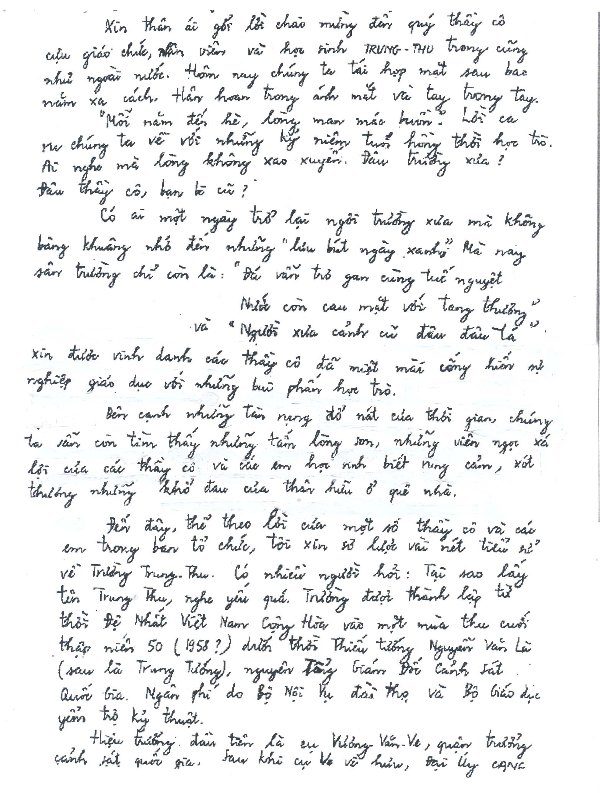 Xin thân ái gởi lời chào mừng đến quý thầy cô
cựu giáo chức, nhân viên và học sinh TRUNG-THU trong cũng
như ngoài nước. Hôm nay chúng ta tái họp mặt sau bao
năm xa cách. Hân hoan trong ánh mắt và tay trong tay.
"Mỗi năm đến hè, lòng man mác buồn". Lời ca
ru chúng ta về với những kỷ niệm tuổi hồng thời học trò.
Ai nghe mà lòng không xao xuyến. Đâu trường xưa?
Đâu thầy cô, bạn bè cũ?
Có ai một ngày trở lại ngôi trường xưa mà không
bâng khuâng nhớ đến những "lưu bút ngày xanh". Mà nay
sân trường chỉ còn là: "Đá vẫn trơ gan cùng tuế nguyệt
Nước còn cau mặt với tang thương"
và "Người xưa cảnh cũ đâu đâu tá"
Xin được vinh danh các thầy cô đã miệt mài cống hiến sự
nghiệp giáo dục với những bụi phấn học trò.
Bên cạnh những tàn rụng đổ nát của thời gian, chúng
ta vẫn còn tìm thấy những tấm lòng son, những viên ngọc xá
lợi của các thầy cô và các em học sinh biết rung cảm, xót
thương những khổ đau của thân hữu ở quê nhà.
Đến đây, thể theo lời của một số thầy cô và các
em trong ban tổ chức, tôi xin sơ lược vài nét tiểu sử
về Trường Trung-Thu. Có nhiều người hỏi: Tại sao lấy
tên Trung Thu, nghe yếu quá. Trường được thành lập từ
thời Đệ Nhất Việt Nam Cộng Hòa vào một mùa thu cuối
thập niên 50 (1958?) dưới thời Thiếu tướng Nguyễn Văn Là
(sau là Trung Tướng), nguyên Tổng Giám Đốc Cảnh Sát
Quốc Gia. Ngân phí do Bộ Nội Vụ đài thọ và Bộ Giáo dục
yểm trợ kỹ thuật.
Hiệu trưởng đầu tiên là cụ Vương-Văn-Ve, quận trưởng
cảnh sát quốc gia. Sau khi cụ Ve về hưu, Đại Úy CANG